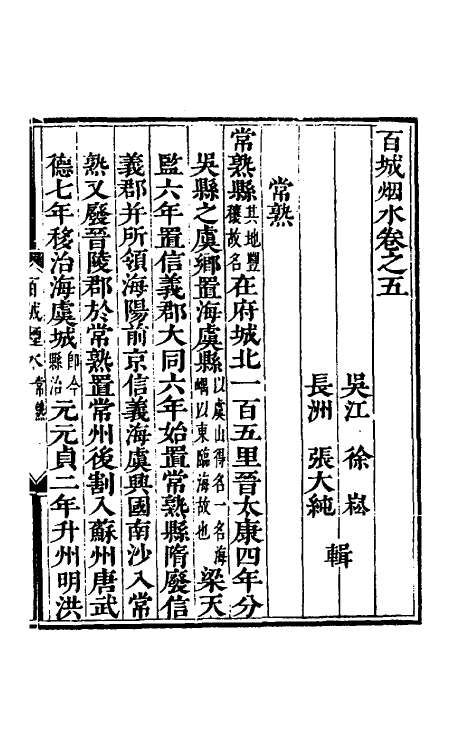 百城烟水卷之五
吳江 徐崧
長洲 張大純 輯
常熟
常熟縣其地豐穰故名在府城北一百五里晉太康四年分
吳縣之虞鄉置海虞縣以虞山得名一名海嵎以東臨海故也梁天
監六年置信義郡大同六年始置常熟縣隋廢信
義郡并所領海陽前京信義海虞興國南沙入常
熟又廢晉陵郡於常熟置常州後割入蘇州唐武
德七年移治海虞城即今縣治元元貞二年升州明洪
百城烟水 常熟